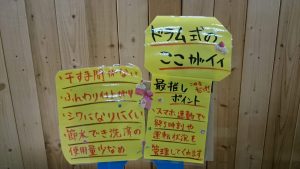 ドラム式の
ここがイイ
干す手間がない
・ふんわり仕上がり
・シワになりにくい
・節水でき洗濯の
使用量少なめ
最推し
ポイント
・スマホ連動で
終了時刻や
運転状況を
管理してくれます